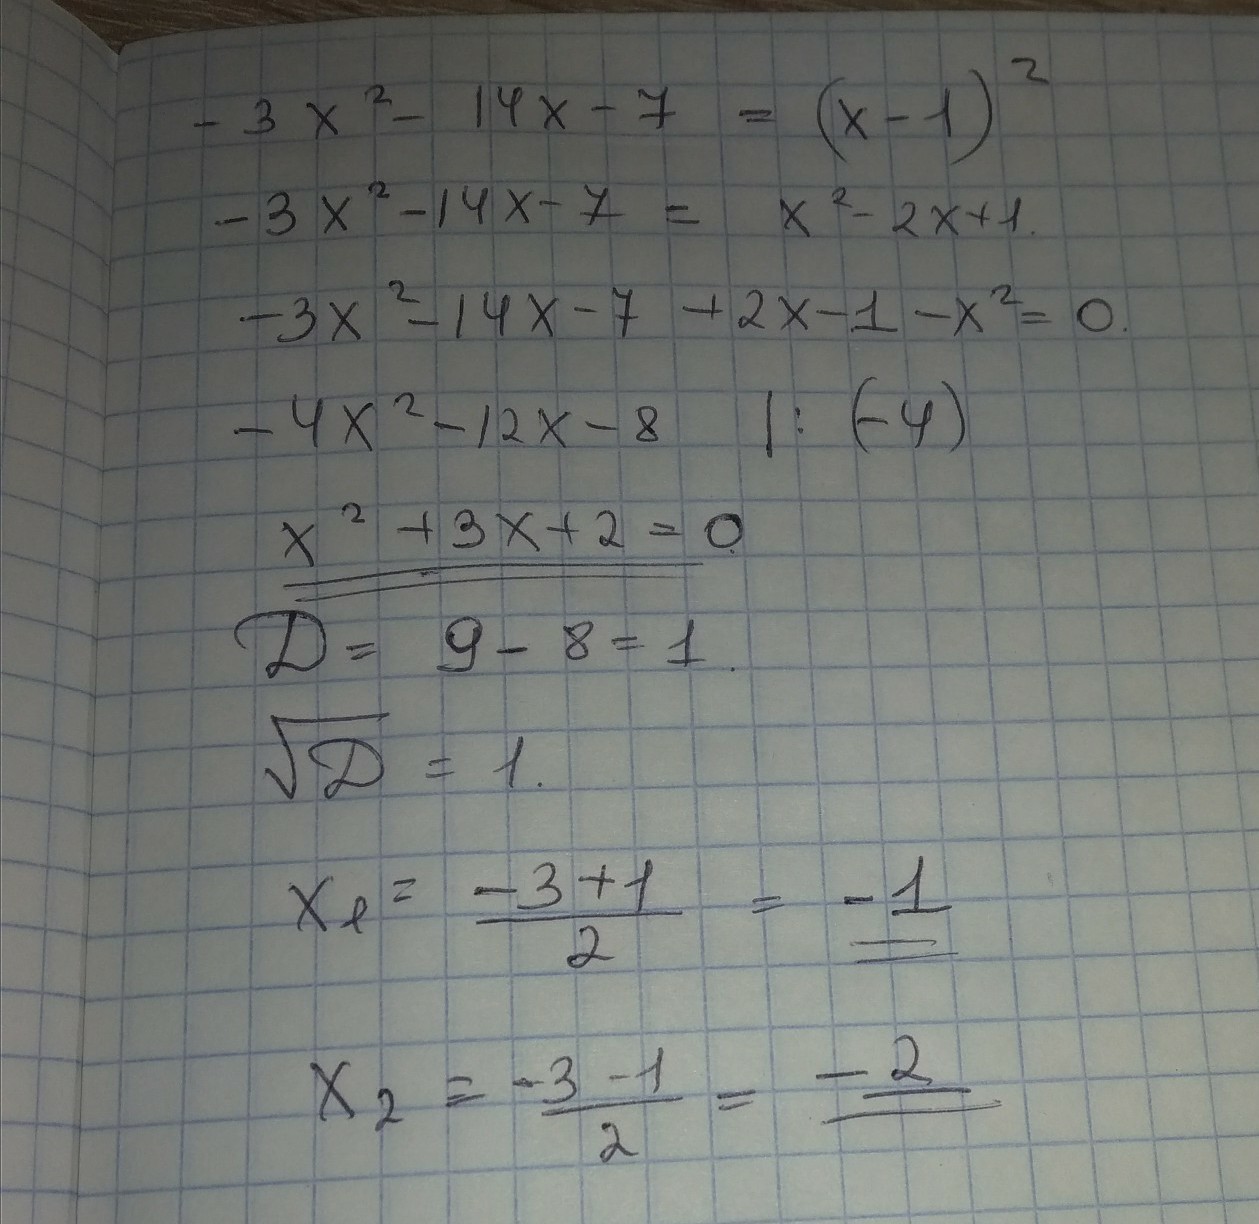 -3x² - 14x - 7 = (x - 1)²
-3x² - 14x - 7 = x² - 2x + 1.
-3x² - 14x - 7 + 2x - 1 - x² = 0.
-4x² - 12x - 8 | : (-4)
x² + 3x + 2 = 0
D = 9 - 8 = 1.
√D = 1.
x₁ = (-3 + 1)/2 = -1
x₂ = (-3 - 1)/2 = -2